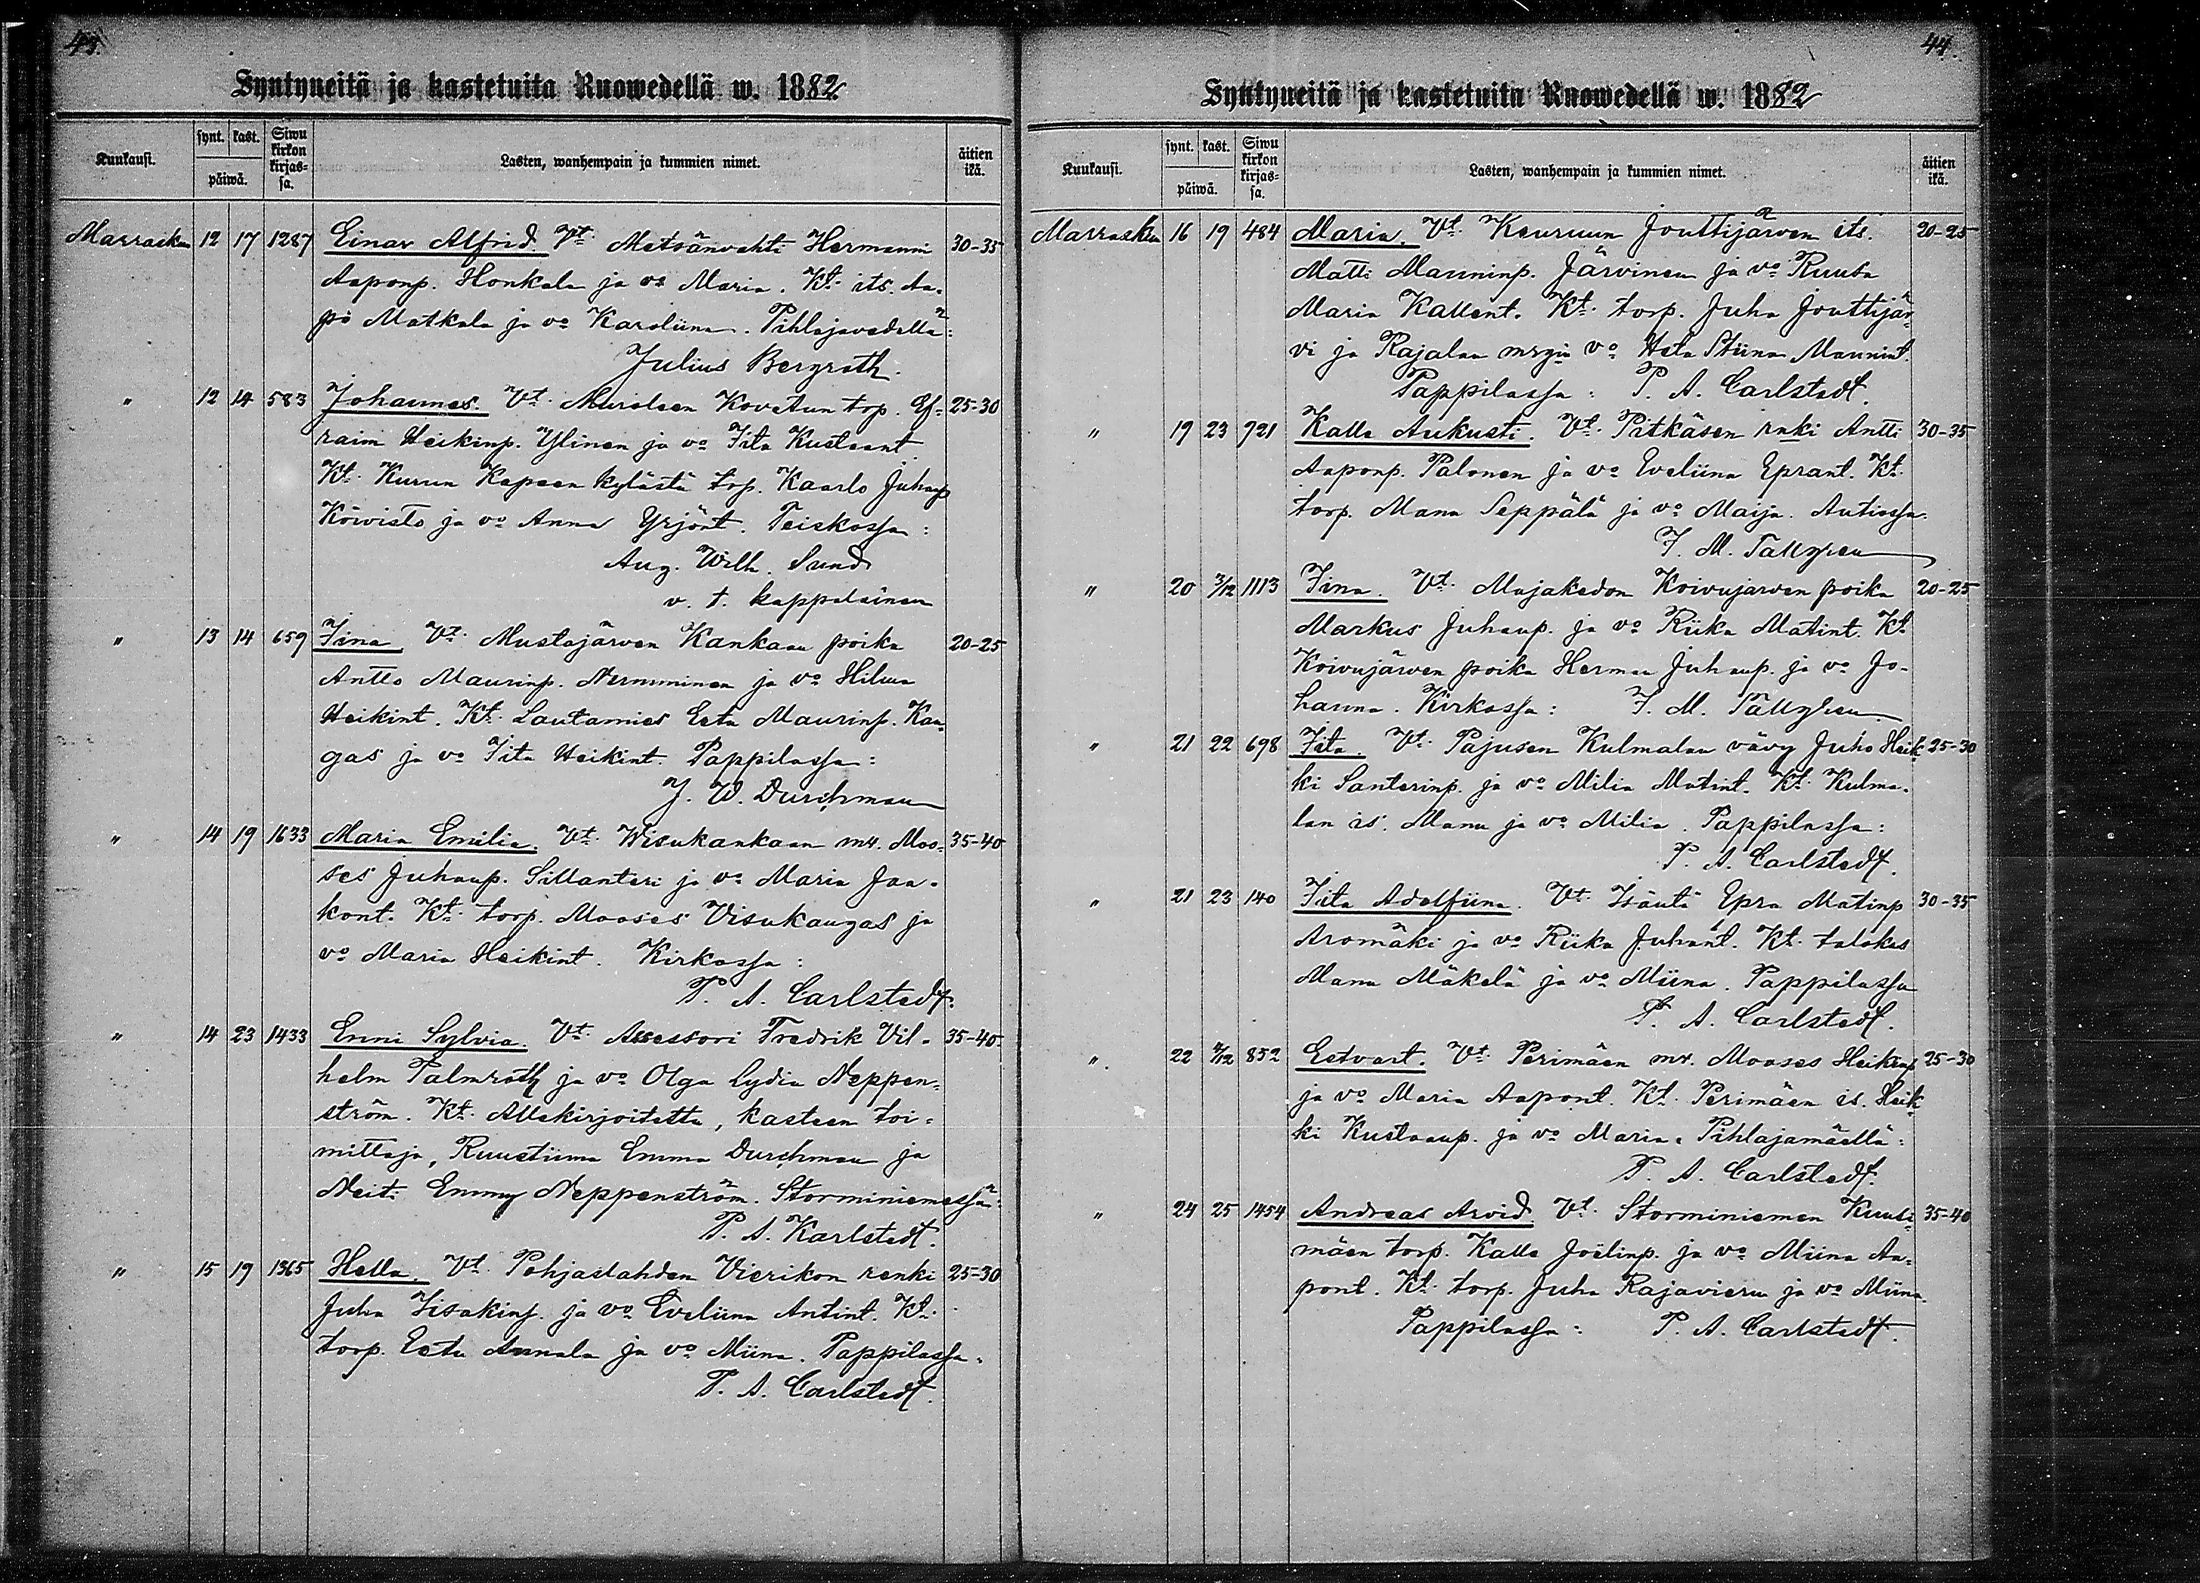 43.
Syntyneitä ja kastetuita Ruowedellä w. 1882
Kuukausi.
synt. kast.
päiwä.
Siwu kirkon kirjas= sa.
Lasten, wanhempain ja kummien nimet.
äitien ikä.
Marrasku 12 17 1287 Einar Alfrid Vt. Metsänvahti Hermanni 30-35
Aaponp. Honkala ja vo Maria. Kt. its. Aa-
po Matkala ja vo Karoliina. Pihlajavedellä:
Julius Bergroth.
" 12 14 583 Johannes. Vt. Muroleen Kovetun top. Ef- 25-30
raim Heikinp. Ylinen ja vo Iita Kustaant.
Kt. Kurun Kapeen kylästä top. Kaarlo Juhanp
Koivisto ja vo Anna Yrjönt. Teiskossa:
Aug. Wilh. Sund
v. t. kappalainen
" 13 14 659 Iina Vt. Mustajärven Kankaan poika 20-25
Antto Maurinp. Nurmminen ja vo Hilma
Heikint. Kt. Lautamies Eetu Maurinp. Kan-
gas ja vo Iita Heikint. Pappilassa:
J. W. Durchman
" 14 19 1633 Maria Emilia. Vt. Wisukankaan mr. Moo- 35-40
ses Juhanp. Sillanteri ja vo Maria Jaa-
kont. Kt. torp. Mooses Visukangas ja
vo Maria Heikint. Kirkossa:
P. A. Carlstedt.
" 14 23 1433 Enni Sylvia. Vt. Assessori Fredrik Vil- 35-40
helm Palmroth ja vo Olga Lydia Neppen-
ström. Kt. Allekirjoitettu, kasteen toi-
mittaja, Ruustiina Emma Durchman ja
Neiti Emmy Neppenström. Storminiemessä:
P. A. Karlstedt.
" 15 19 1365 Hella. Vt. Pohjaslahden Vierikon renki 25-30
Juha Iisakinp. ja vo Eveliina Antint. Kt.
torp. Eetu Annala ja vo Miina. Pappilassa.
P. A. Carlstedt.
44.
Syntyneitä ja kastetuita Ruowedellä w. 1882
Kuukausi.
synt. kast.
päiwä.
Siwu kirkon kirjas= sa.
Lasten, wanhempain ja kummien nimet.
äitien ikä.
Marrasku 16 19 484 Maria. Vt. Keuruun Jouttijärven its. 20-25
Matti Manninp. Järvinen ja vo Ruusa
Maria Kallent. Kt. torp. Juha Jouttijär-
vi ja Rajalan mrgin vo Heta Stiina Mannint.
Pappilassa: P. A. Carlstedt.
" 19 23 721 Kalle Aukusti. Vt. Pitkäsen rnki Antti 30-35
Aaponp. Palonen ja vo Eveliina Eprant. Kt.
torp. Manu Seppälä ja vo Maija. Autiossa.
F. M. Tallgren
" 20 3/12 1113 Iina. Vt. Majakedon Koivujärven poika 20-25
Markus Juhanp. ja vo Riika Matint. Kt.
Koivujärven poika Herman Juhanp. ja vo Jo-
hanna. Kirkossa: F. M. Tallgren
" 21 22 698 Iita. Vt. Pajusen Kulmalan vävy Juho Heik- 25-30
ki Santerinp. ja vo Milia Matint. Kt. Kulma-
lan is. Manu ja vo Milia. Pappilassa:
P. A. Carlstedt.
" 21 23 140 Iita Adolfiina. Vt. Isäntä Epra Matinp 30-35
Aromäki ja vo Riika Juhant. Kt. talokas
Manu Mäkelä ja vo Miina. Pappilassa
P. A. Carlstedt.
" 22 2/12 852 Eetvart. Vt. Perimäen mr. Mooses Heikinp 25-30
ja vo Maria Aapont. Kt. Perimäen is. Heik-
ki Kustaanp. ja vo Maria. Pihlajamäellä:
P. A. Carlstedt.
" 24 25 1454 Andreas Arvid Vt. Storminiemen Kuusi- 35-40
mäen torp. Kalle Joelinp. ja vo Miina Aa-
pont. Kt. torp. Juha Rajavieru ja vo Miina.
Pappilassa: P. A. Carlstedt.